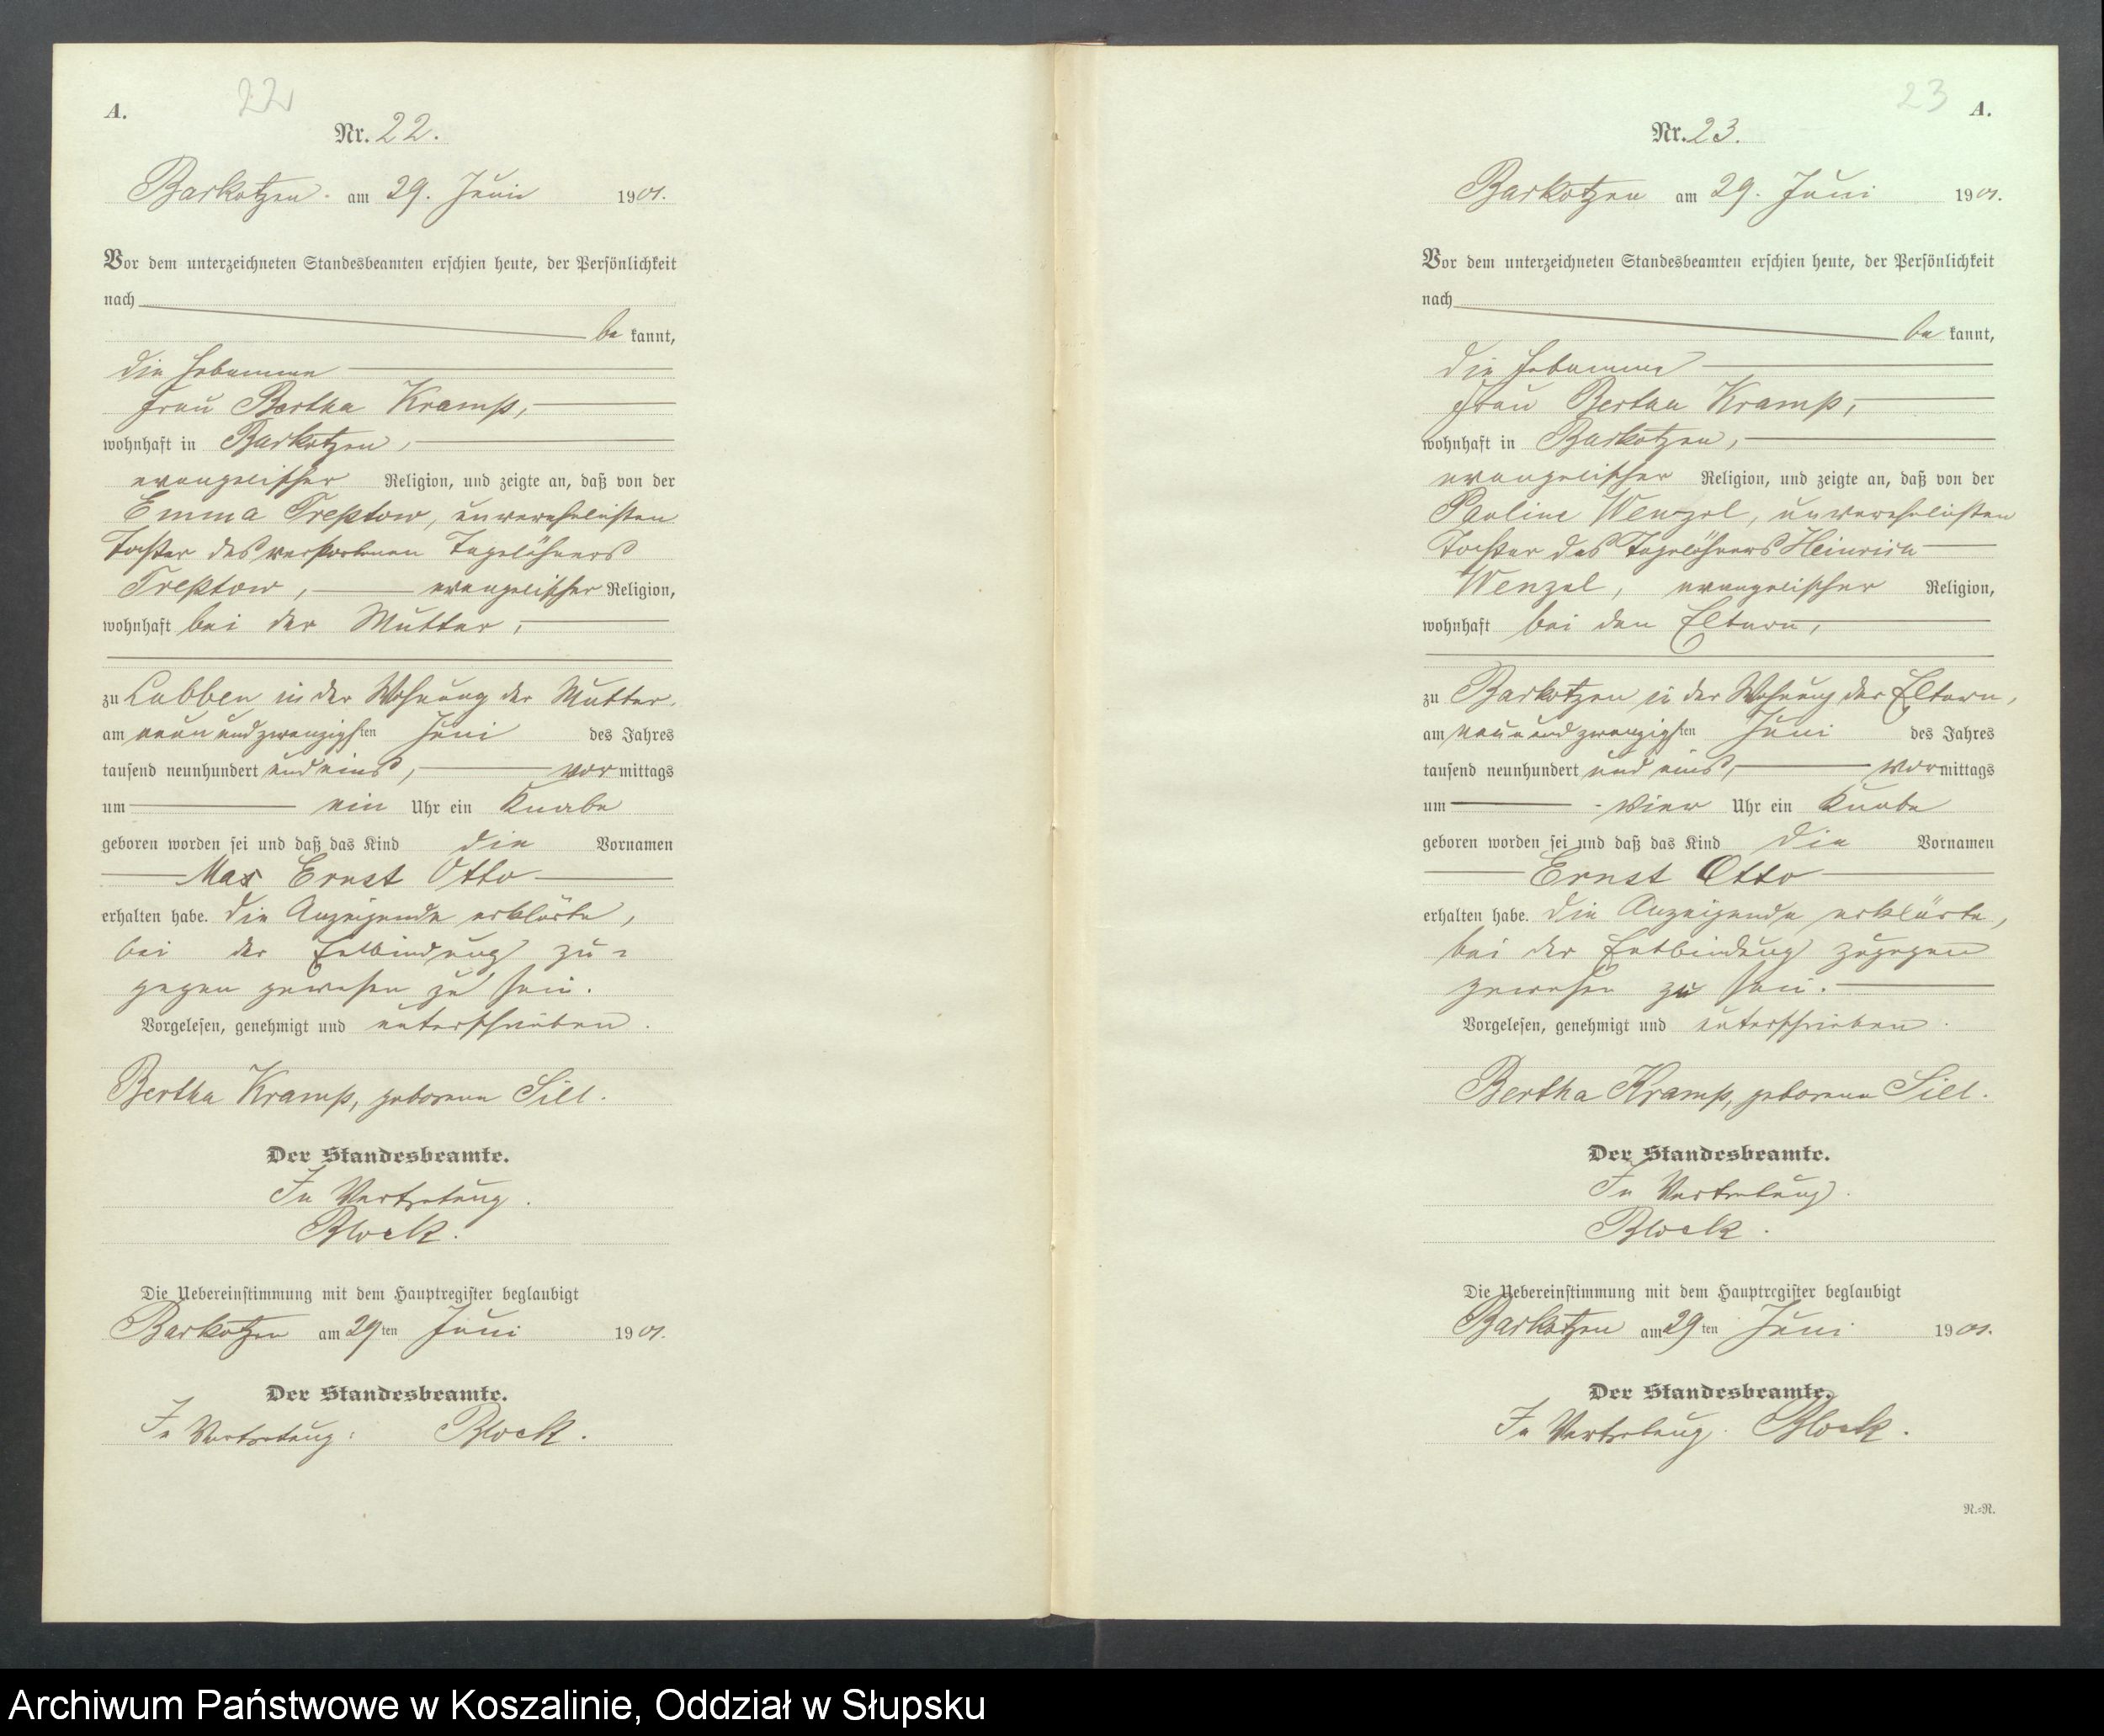 A.
22
Nr. 22.
Barkotzen. am 29. Juni 1901.
Vor dem unterzeichneten Standesbeamten erschien heute, der Persönlichkeit
nach
be kannt,
die Hebamme
Frau Bertha Kramp,
wohnhaft in Barkotzen,
evangelischer Religion, und zeigte an, daß von der
Emma Treptow, unverehelichten
Tochter des verstorbenen Tagelöhners
Treptow, evangelischer Religion,
wohnhaft bei der Mutter,
zu Labben in der Wohnung der Mutter,
am neunundzwanzigsten Juni des Jahres
tausend neunhundert und eins, vormittags
um ein Uhr ein Knabe
geboren worden sei und daß das Kind die Vornamen
Max Ernst Otto
erhalten habe. Die Anzeigende erklärte,
bei der Entbindung zu=
gegen gewesen zu sein.
Vorgelesen, genehmigt und unterschrieben.
Bertha Kramp, geborene Sill.
Der Standesbeamte.
In Vertretung.
Block.
Die Uebereinstimmung mit dem Hauptregister beglaubigt
Barkotzen am 29ten Juni 1901.
Der Standesbeamte.
In Vertretung: Block.
23
A.
Nr. 23.
Barkotzen am 29. Juni 1901.
Vor dem unterzeichneten Standesbeamten erschien heute, der Persönlichkeit
nach
be kannt,
die Hebamme
Frau Bertha Kramp,
wohnhaft in Barkotzen,
evangelischer Religion, und zeigte an, daß von der
Pauline Wenzel, unverehelichten
Tochter des Tagelöhners Heinrich
Wenzel, evangelischer Religion,
wohnhaft bei den Eltern,
zu Barkotzen in der Wohnung der Eltern,
am neunundzwanzigsten Juni des Jahres
tausend neunhundert und eins, vormittags
um vier Uhr ein Knabe
geboren worden sei und daß das Kind die Vornamen
Ernst Otto
erhalten habe. Die Anzeigende erklärte,
bei der Entbindung zugegen
gewesen zu sein.
Vorgelesen, genehmigt und unterschrieben.
Bertha Kramp, geborene Sill.
Der Standesbeamte.
In Vertretung.
Block.
Die Uebereinstimmung mit dem Hauptregister beglaubigt
Barkotzen am 29ten Juni 1901.
Der Standesbeamte.
In Vertretung. Block.
N.=R.
Archiwum Państwowe w Koszalinie, Oddział w Słupsku